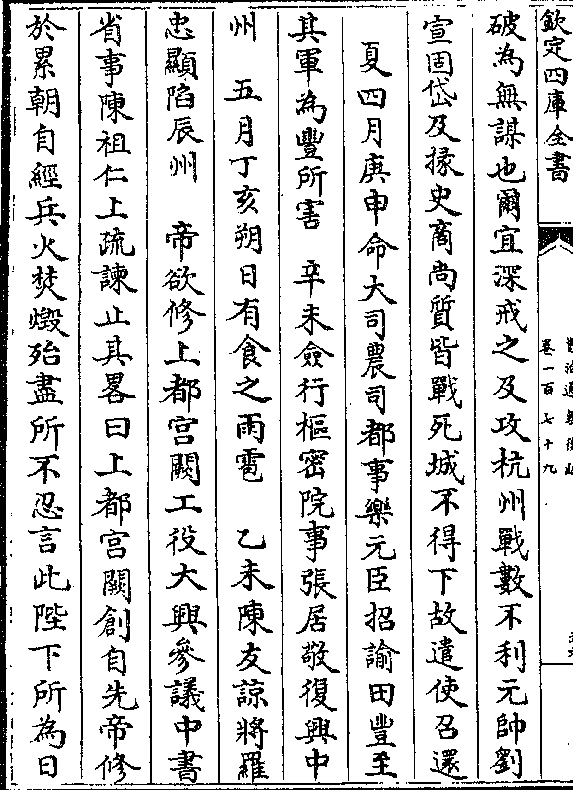 欽定四庫全書
卷一百七十九
破為無謀也爾宜深戒之及攻杭州戰數不利元帥劉
宣固岱及掾史商尚質皆戰死城不得下故遣使召還
夏四月庚申命大司農司都事樂元臣招諭田豐至
其軍為豐所害　辛未僉行樞密院事張居敬復興中
州　五月丁亥朔日有食之雨雹　乙未陳友諒將羅
忠顯陷辰州　帝欲修上都宫闕工役大興參議中書
省事陳祖仁上疏諫止其畧曰上都宫闕創自先帝修
於累朝自經兵火焚燬殆盡所不忍言此陛下所為日